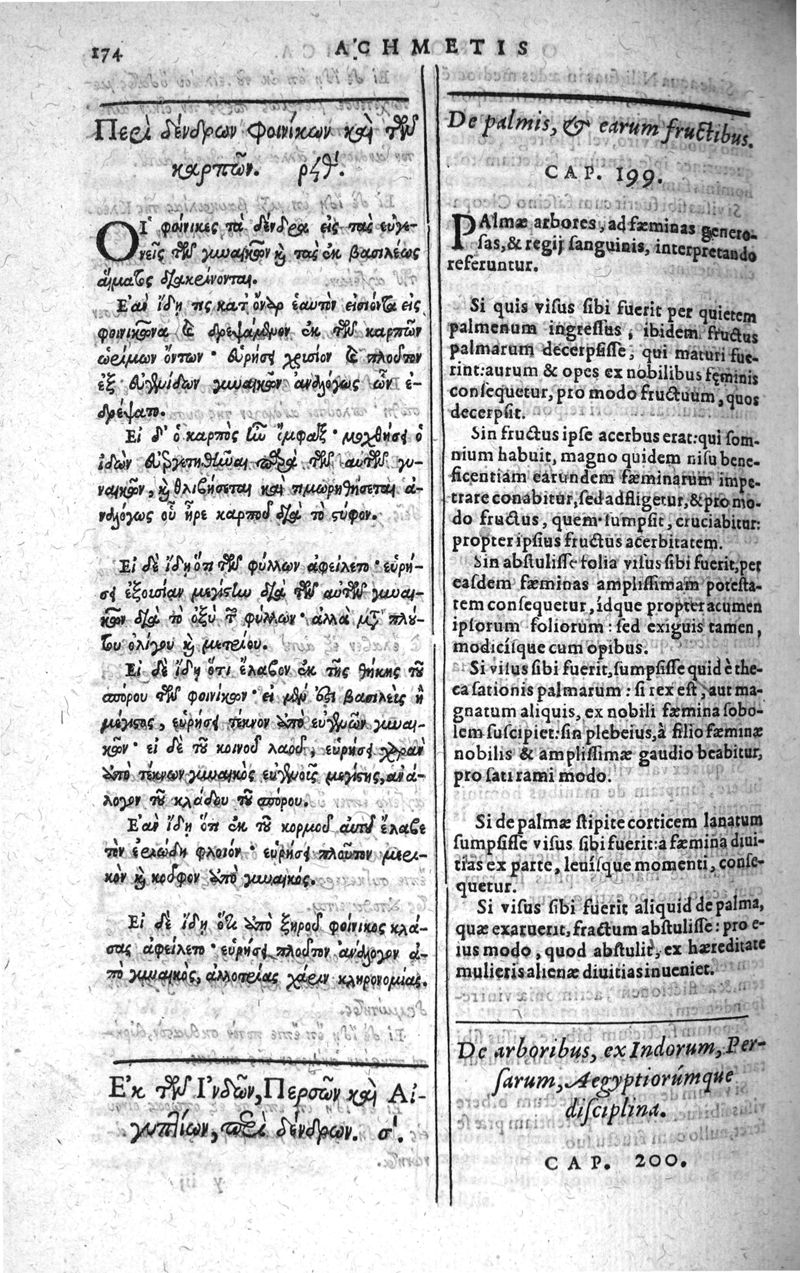 174
ACHMETIS
Περὶ δένδρων φοινίκων καὶ τῶν
καρπῶν. ρϟθʹ.
Οἱ φοίνικες τὰ δένδρα εἰς τὰς εὐγε-
νεῖς τῶν γυναικῶν καὶ τὰς ἐκ βασιλέως
αἵματος διακρίνονται.
Ἐὰν ἴδῃ τις κατ' ὄναρ ἑαυτὸν εἰσιόντα εἰς
φοινικῶνα καὶ δρεψάμενον ἐκ τῶν καρπῶν
ὡρίμων ὄντων· εὑρήσει χρυσίον καὶ πλοῦτον
ἐξ εὐγενίδων γυναικῶν ἀναλόγως ὧν ἐ-
δρέψατο.
Εἰ δ' ὁ καρπὸς ἦν ὄμφαξ· μοχθήσει ὁ
ἰδὼν εὐεργετηθῆναι παρὰ τῶν αὐτῶν γυ-
ναικῶν, καὶ θλιβήσεται καὶ τιμωρηθήσεται ἀ-
ναλόγως οὗ ἦρε καρποῦ διὰ τὸ στύφον.
Εἰ δὲ ἴδῃ ὅτι τῶν φύλλων ἀφείλετο· εὑρή-
σει ἐξουσίαν μεγίστην διὰ τῶν αὐτῶν γυναι-
κῶν διὰ τὸ ὀξὺ τῶν φύλλων· ἀλλὰ μετὰ πλού-
του ὀλίγου καὶ μετρίου.
Εἰ δὲ ἴδῃ ὅτι ἔλαβεν ἐκ τῆς θήκης τοῦ
σπόρου τῶν φοινίκων· εἰ μὲν ἔστι βασιλεὺς ἢ
μέγιστος, εὑρήσει τέκνον ἀπὸ εὐγενῶν γυναι-
κῶν· εἰ δὲ τοῦ κοινοῦ λαοῦ, εὑρήσει χαρὰν
ἀπὸ τέκνων γυναικὸς εὐγενοῦς μεγίστης, ἀνά-
λογον τοῦ κλάδου τοῦ σπόρου.
Ἐὰν ἴδῃ ὅτι ἐκ τοῦ κορμοῦ αὐτοῦ ἔλαβε
τὸν ἐριώδη φλοιόν· εὑρήσει πλοῦτον μερι-
κὸν καὶ κοῦφον ἀπὸ γυναικός.
Εἰ δὲ ἴδῃ ὅτι ἀπὸ ξηροῦ φοίνικος κλά-
σας ἀφείλετο· εὑρήσει πλοῦτον ἀνάλογον ἀ-
πὸ γυναικός, ἀλλοτρίας χάριν κληρονομίας.
Ἐκ τῶν Ἰνδῶν, Περσῶν καὶ Αἰ-
γυπτίων, περὶ δένδρων. σʹ.
De palmis, & earum fructibus.
CAP. 199.
PAlmæ arbores, ad fæminas genero-
sas, & regij sanguinis, interpretando
referuntur.
Si quis visus sibi fuerit per quietem
palmenum ingressus, ibidem fructus
palmarum decerpsisse, qui maturi fue-
rint: aurum & opes ex nobilibus feminis
consequetur, pro modo fructuum, quos
decerpsit.
Sin fructus ipse acerbus erat: qui som-
nium habuit, magno quidem nisu bene-
ficentiam earundem fæminarum impe-
trare conabitur, sed adfligetur, & pro mo-
do fructus, quem sumpsit, cruciabitur:
propter ipsius fructus acerbitatem.
Sin abstulisse folia visus sibi fuerit, per
easdem fæminas amplissimam potesta-
tem consequetur, idque propter acumen
ipsorum foliorum: sed exiguis tamen,
modicisque cum opibus.
Si visus sibi fuerit, sumpsisse quid è the-
ca sationis palmarum: si rex est, aut ma-
gnatum aliquis, ex nobili fæmina sobo-
lem suscipiet: sin plebeius, à filio fæminæ
nobilis & amplissimæ gaudio beabitur,
pro sati rami modo.
Si de palmæ stipite corticem lanatum
sumpsisse visus sibi fuerit: a fæmina diui-
tias ex parte, leuisque momenti, conse-
quetur.
Si visus sibi fuerit aliquid de palma,
quæ exaruerit, fractum abstulisse: pro e-
ius modo, quod abstulit, ex hæreditate
mulieris alienæ diuitias inueniet.
De arboribus, ex Indorum, Per-
sarum, Aegyptiorúmque
disciplina.
CAP. 200.